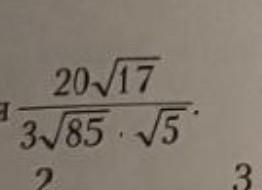 20√17
3√85 · √5.
2 3